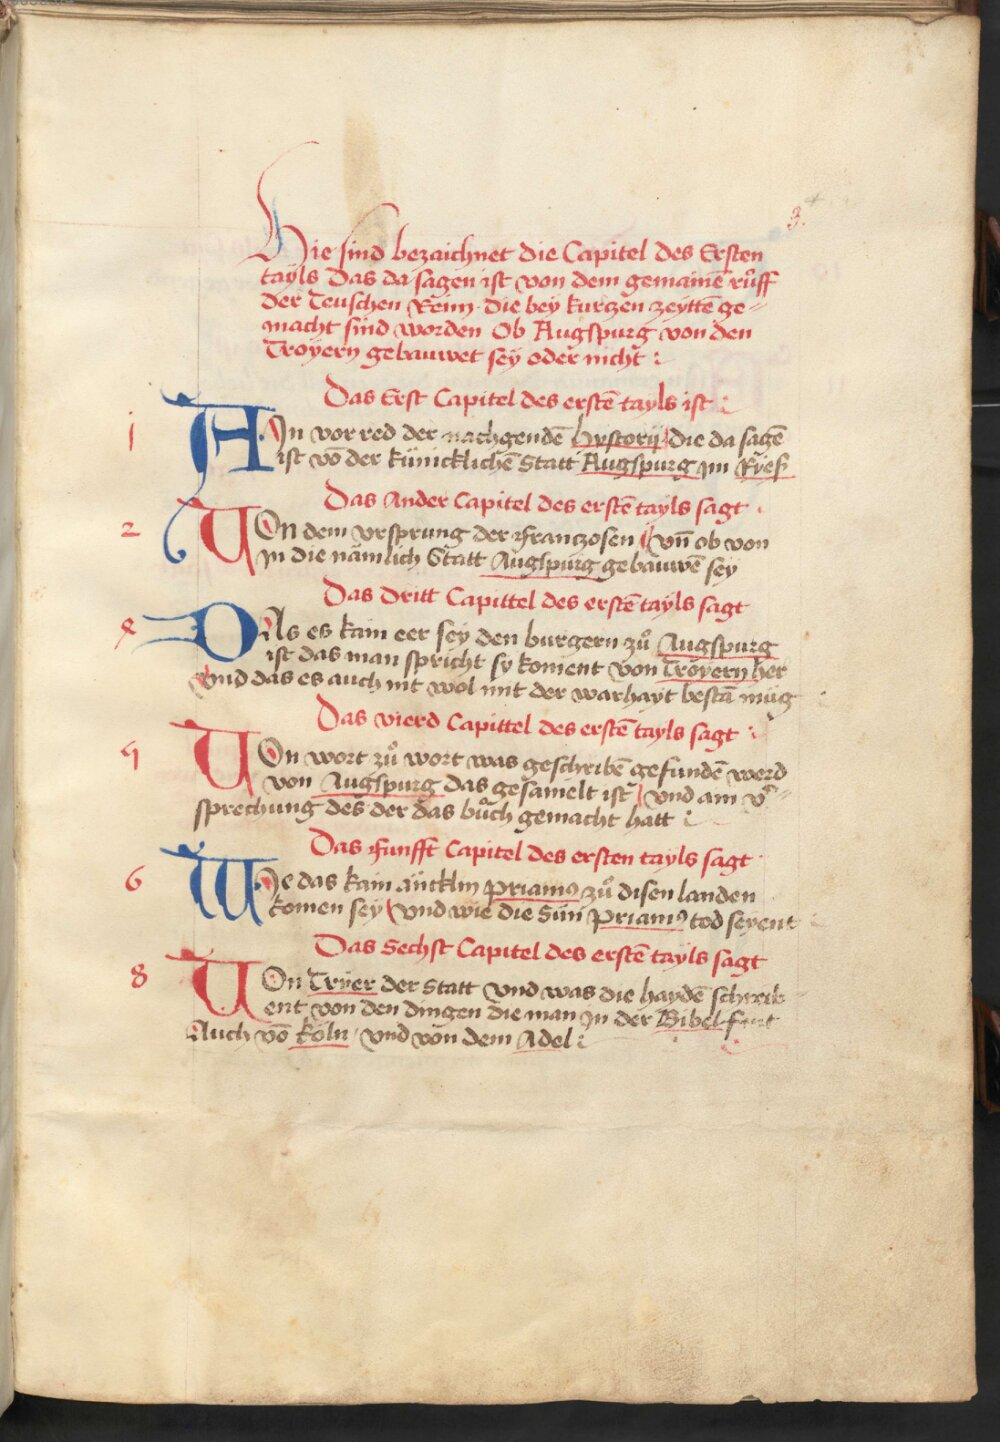 3.
Hie sind bezaichnet die Capitel des Ersten
tayls Das da sagen ist von dem gemainē růff
der Teuschen Reim · die bey kurtzen zeyttē ge-
macht sind worden Ob Augspurg von den
Troyern gebauwet sey oder nicht :
Das Erst Capitel des erstē tayls ist :
1 AIn vor red der nachgendē hystorij die da sagē
ist võ der künicklichē Statt Augspurg jm Ryeß
Das Ander Capitel des erstē tayls sagt
2 VOn dem vrsprung der Franczosen / vn̄ ob von
jn die nämlich Statt Augspurg gebauwē sey
Das Dritt Capittel des erstē tayls sagt
DAs es kain eer sey den burgern zů Augspurg
ist das man spricht sy koment von Troyern her
vnd das es auch nit wol mit der warhayt bestā müg
Das vierd Capittel des erstē tayls sagt :
VOn wort zů wort was geschribē gefundē werd
von Augspurg das gesamelt ist / vnd am v̄-
sprechung des der das bůch gemacht hatt :
Das Funfft Capitel des ersten tayls sagt
6 WIe das kain äncklin priamꝰ zů disen landen
komen sey / vnd wie die Sün priamꝰ tod seyent
Das Sechst Capitel des erstē tayls sagt
8 VOn Tryer der Statt vnd was die haydē schreib
ent von den dingen die man jn der Bibel
Auch võ köln / vnd von dem Adel :